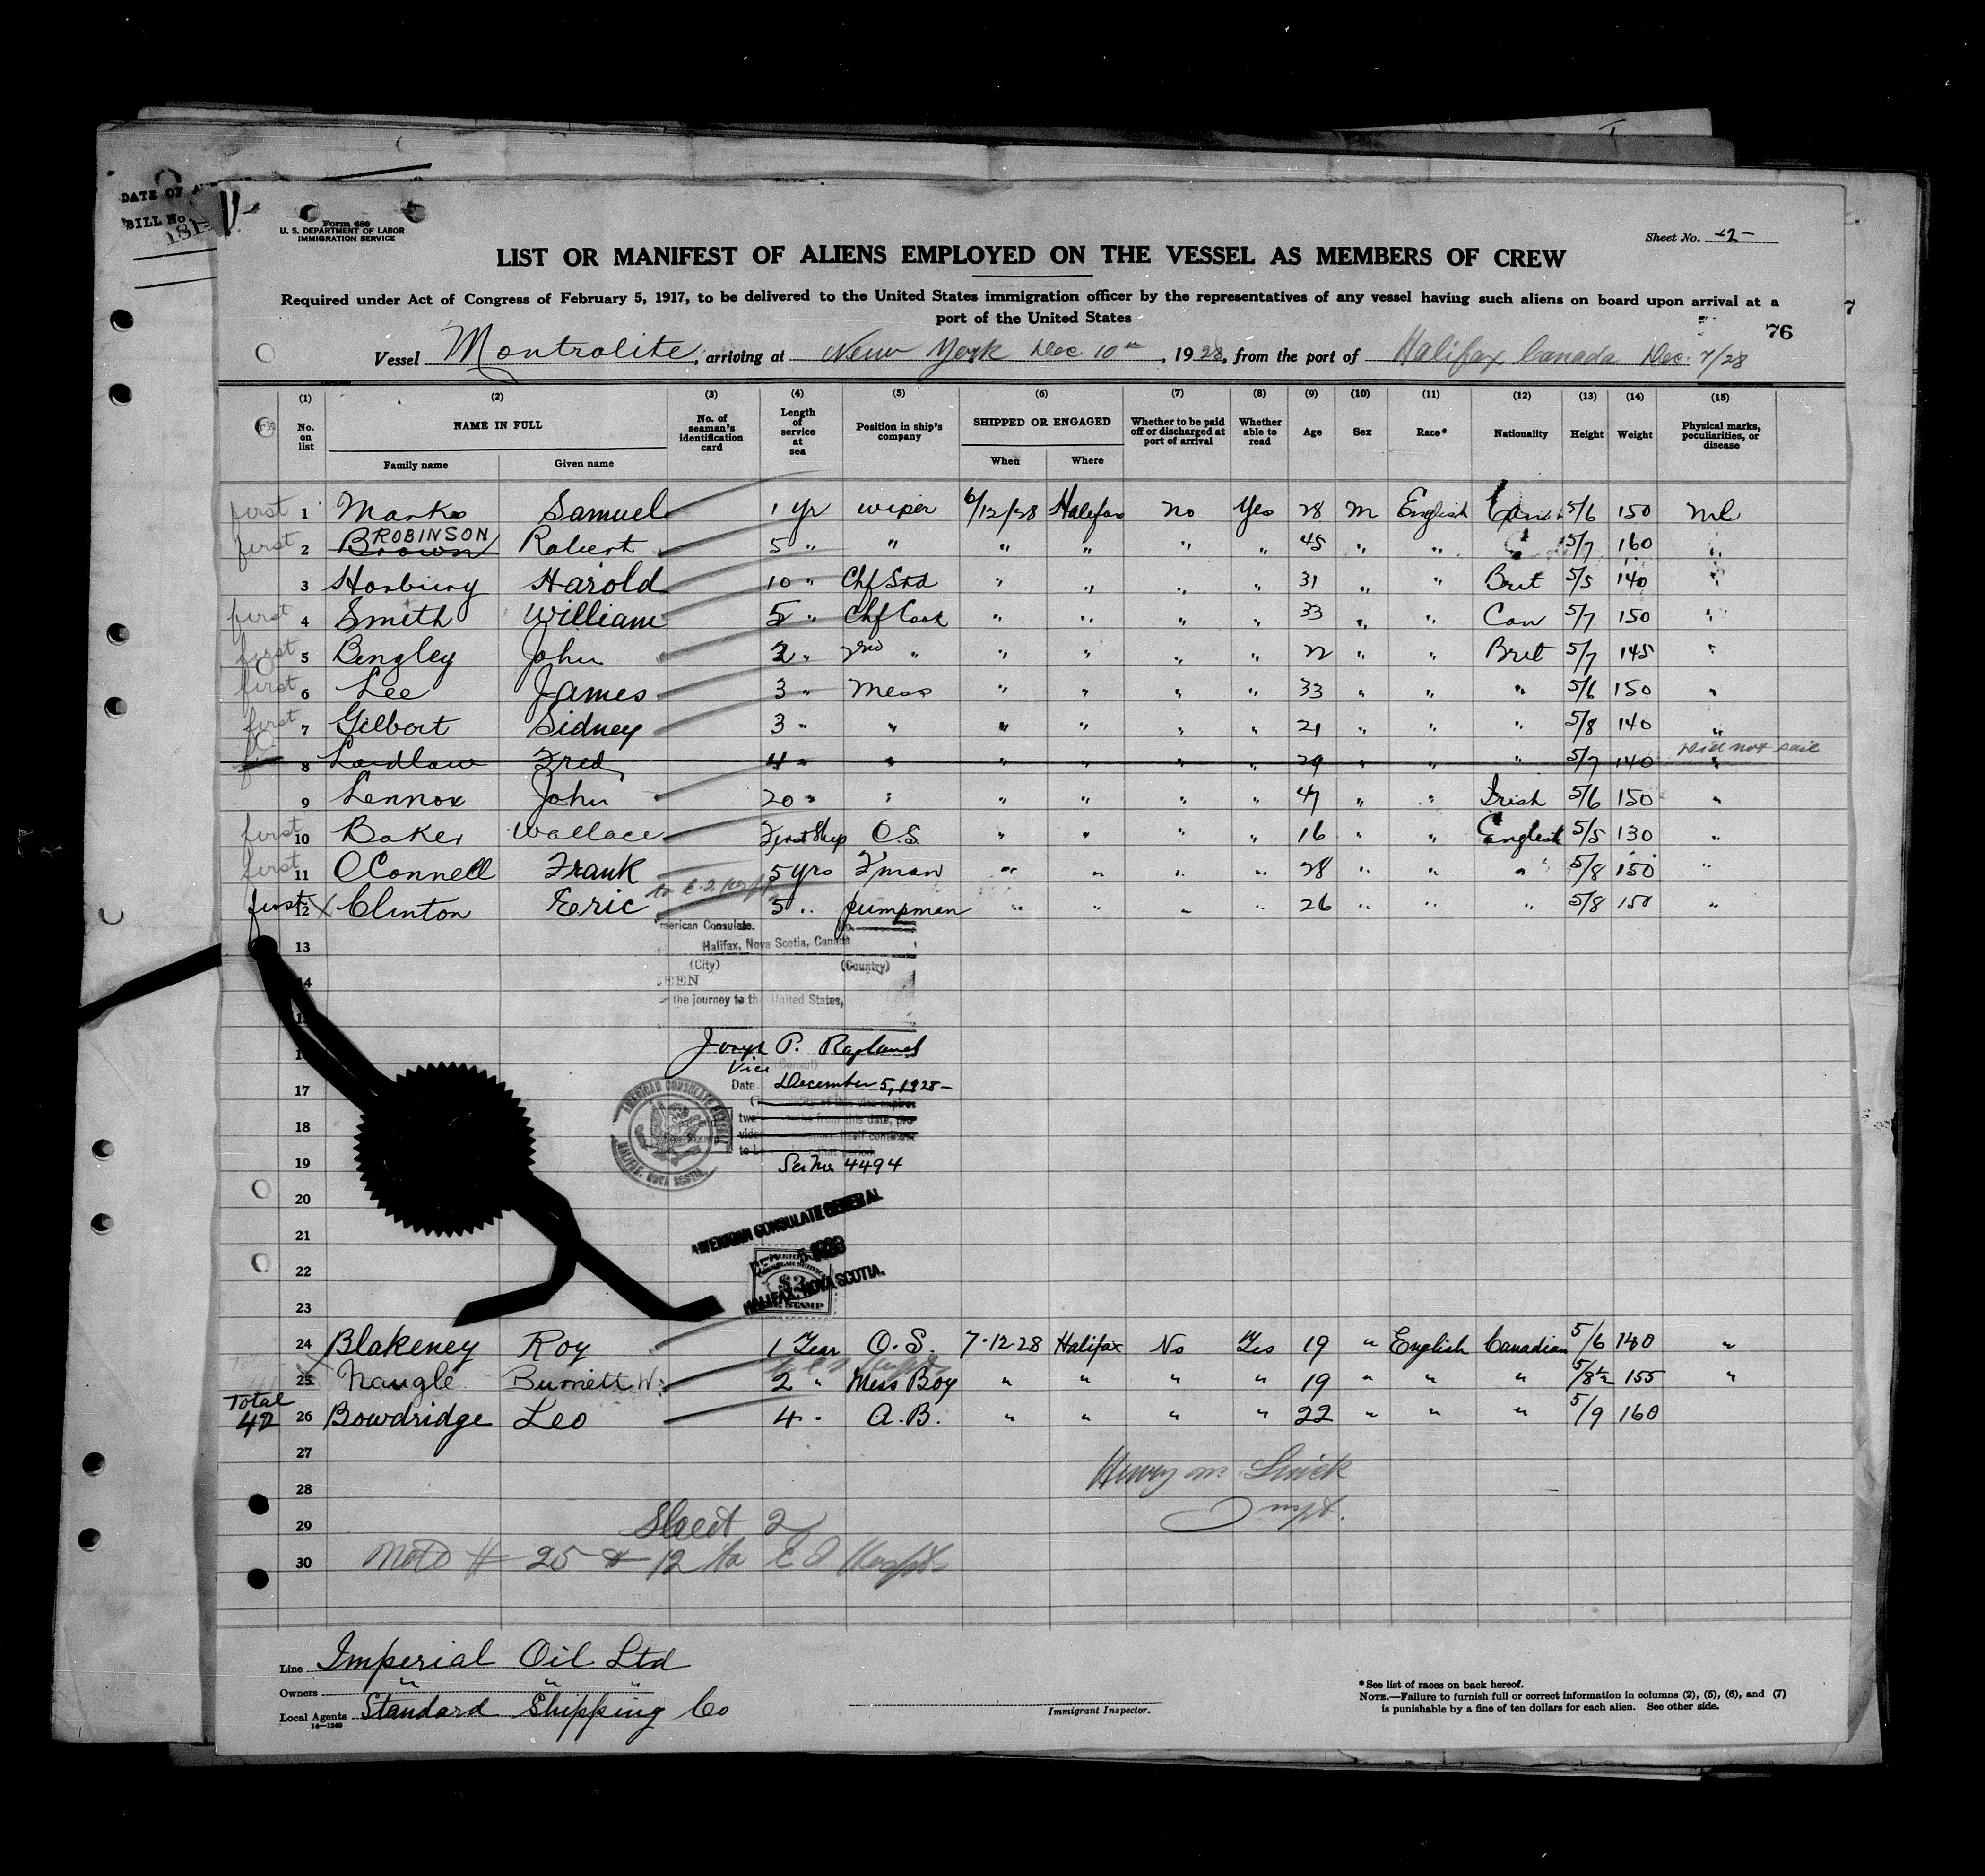 DATE OF
BILL No
181
Form 680
U. S. DEPARTMENT OF LABOR
IMMIGRATION SERVICE
Sheet No. -2-
LIST OR MANIFEST OF ALIENS EMPLOYED ON THE VESSEL AS MEMBERS OF CREW
Required under Act of Congress of February 5, 1917, to be delivered to the United States immigration officer by the representatives of any vessel having such aliens on board upon arrival at a
port of the United States
7
76
Vessel Montrolite, arriving at New York Dec 10th, 1928, from the port of Halifax Canada Dec. 7/28
(1) (2) (3) (4) (5) (6) (7) (8) (9) (10) (11) (12) (13) (14) (15)
No. on list NAME IN FULL Family name Given name No. of seaman's identification card Length of service at sea Position in ship's company SHIPPED OR ENGAGED When Where Whether to be paid off or discharged at port of arrival Whether able to read Age Sex Race* Nationality Height Weight Physical marks, peculiarities, or disease
first 1 Marks Samuel 1 yr wiper 6/12/28 Halifax no Yes 28 M English 5/6 150 nil
first 2 Brown ROBINSON Robert 5 " " " " " " 45 " " 5/7 160 "
3 Horbury Harold 10 " Chf Std " " " " 31 " " Brit 5/5 140 "
first 4 Smith William 5 " Chf Cook " " " " 33 " " Can 5/7 150 "
first 5 Bengley John 2 " 2nd " " " " " 22 " " Brit 5/7 145 "
first 6 Lee James 3 " Mess " " " " 33 " " " 5/6 150 "
first 7 Gilbert Sidney 3 " " " " " " 21 " " " 5/8 140 "
8 Laidlaw Fred 4 " " " " " " 29 " " " 5/7 140 " Did not sail
9 Lennox John 20 " " " " " " 47 " " Irish 5/6 150 "
first 10 Baker Wallace First Ship O.S. " " " " 16 " " English 5/5 130 "
first 11 OConnell Frank 5 yrs F'man " " " " 28 " " " 5/8 150 "
first X 12 Clinton Eric 5 " pumpman " " " " 26 " " " 5/8 150 "
13
merican Consulate.
Halifax, Nova Scotia, Canada
(City) (Country)
14
SEEN
the journey to the United States,
Joseph P. Ragland
Vice Consul
17 Date December 5, 1928-
18
19
Ser No. 4494
AMERICAN CONSULATE GENERAL
HALIFAX, NOVA SCOTIA.
20
21
AMERICAN CONSULATE GENERAL
22
$2
HALIFAX, NOVA SCOTIA.
STAMP
23
24 Blakeney Roy 1 Year O.S. 7-12-28 Halifax No Yes 19 " English Canadian 5/6 140 "
25 Naugle Burnett W. 2 " Mess Boy " " " " 19 " " " 5/8½ 155 "
Total
42 26 Bowdridge Leo 4 " A.B. " " " " 22 " " " 5/9 160
27
28
29 Sheet 2
30 Note # 25 & 12 to
Line Imperial Oil Ltd
Owners " " "
Local Agents Standard Shipping Co
14—1240
Immigrant Inspector.
*See list of races on back hereof.
NOTE.—Failure to furnish full or correct information in columns (2), (5), (6), and (7)
is punishable by a fine of ten dollars for each alien. See other side.